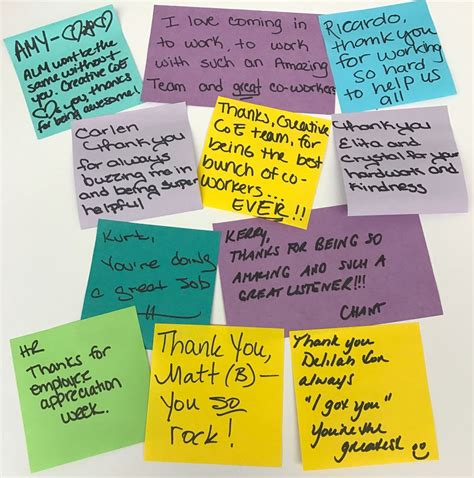 AMY-♡♡♡
ALM wont be the
same without
you. Creative CoE
♡s you thanks
for being awesome!
I love coming in
to work, to work
with such an Amazing
Team and great co-workers
Ricardo,
thank you
for working
so hard
to help us
all
Carlen
thank you
for always
buzzing me in
and being super
helpful
Thanks, Creative
CoE team, for
being the best
bunch of co-
workers...
EVER!!
Thank you
Elita and
Crystal for your
hardwork and
Kindness
Kurt,
You're doing
a great Job
KERRY,
THANKS FOR BEING SO
AMAZING AND SUCH A
GREAT LISTENER!!!
CHANT
HR
Thanks for
employee
appreciation
week.
Thank You,
Matt (B)—
You SO
rock!
Thank you
Delilah for
always
"I got you"
You're the
greatest